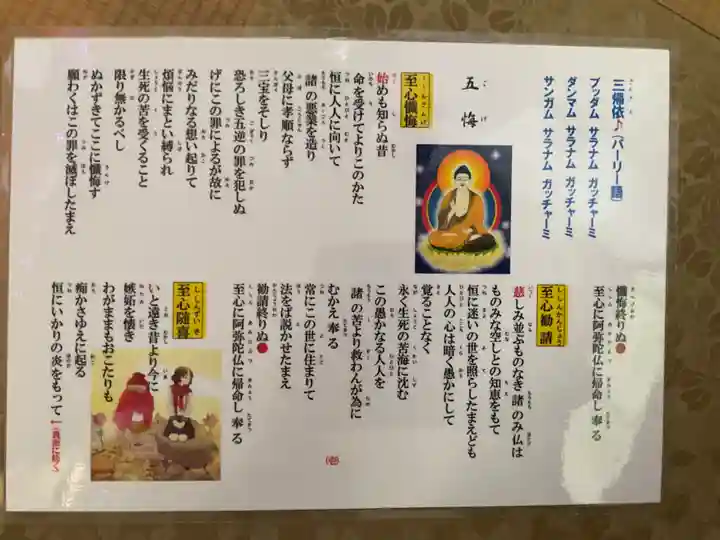 三帰依♪(パーリー語)
ブッダム サラナム ガッチャーミ
ダンマム サラナム ガッチャーミ
サンガム サラナム ガッチャーミ
五悔
至心懺悔
始めも知らぬ昔
命を受けてよりこのかた
恒に人人に向いて
諸の悪業を造り
父母に孝順ならず
三宝をそしり
恐ろしき五逆の罪を犯しぬ
げにこの罪によるが故に
みだりなる想い起りて
煩悩にまとい縛られ
生死の苦を受くること
限り無かるべし
ぬかずきてここに懺悔す
願わくはこの罪を滅ぼしたまえ
懺悔終りぬ●
至心に阿弥陀仏に帰命し奉る
至心勧請
慈しみ並ぶものなき諸のみ仏は
ものみな空しとの知恵をもて
恒に迷いの世を照らしたまえども
人人の心は暗く愚かにして
覚ることなく
永く生死の苦海に沈む
この愚かなる人人を
諸の苦より救わんが為に
むかえ奉る
常にこの世に住まりて
法をば説かせたまえ
勧請終りぬ●
至心に阿弥陀仏に帰命し奉る
至心随喜
いと遠き昔より今に
嫉妬を懐き
わがままもおこたりも
痴かさゆえに起る
恒にいかりの炎をもって←(裏面に続く)